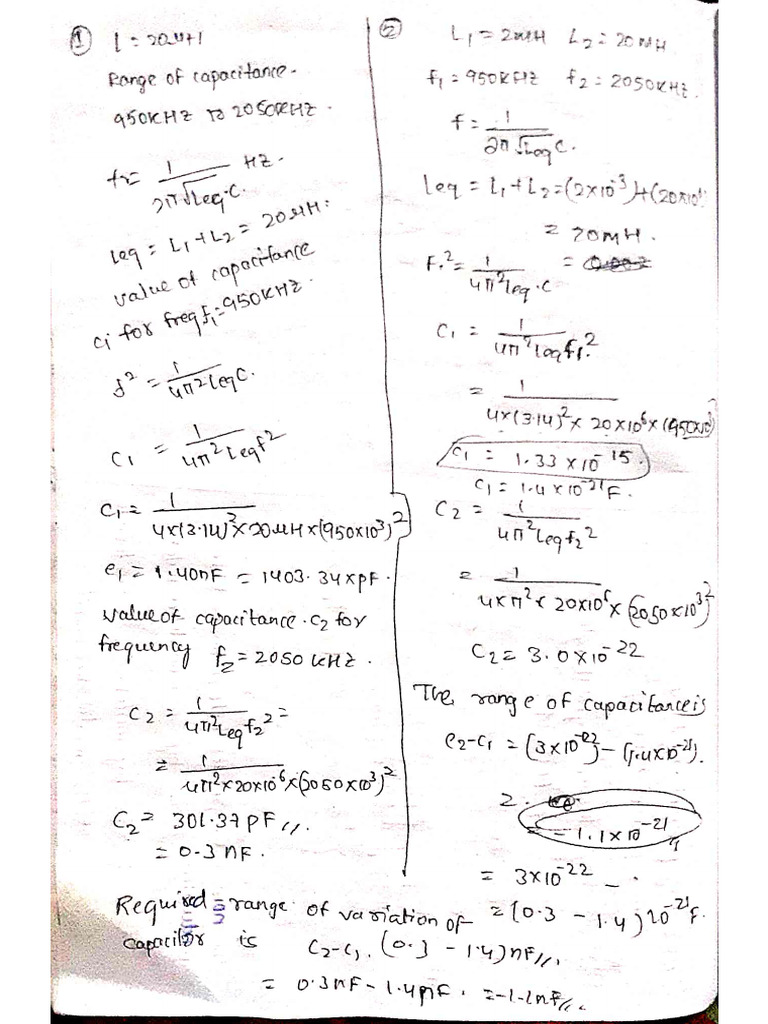 ① L = 20μH
Range of capacitance -
950KHZ to 2050KHZ.
fr = 1 / 2π√Leq.C. HZ.
Leq = L₁+L₂ = 20μH.
value of capacitance
C₁ for freq f₁=950KHZ.
f² = 1 / 4π²LeqC.
C₁ = 1 / 4π²Leqf²
C₁ = 1 / 4×(3.14)²×20μH×(950×10³)²
C₁ = 1.40nF = 1403.34×pF.
value of capacitance. C₂ for
frequency f₂ = 2050 KHZ.
C₂ = 1 / 4π²Leqf₂² =
= 1 / 4π²×20×10⁶×(2050×10³)²
C₂ = 301.37PF //.
= 0.3 nF.
② L₁ = 2mH L₂ = 20MH
f₁ = 950KHZ f₂ = 2050KHZ.
f = 1 / 2π√Leq C.
Leq = L₁+L₂ = (2×10⁻³)+(20×10⁶
= 20MH.
F.² = 1 / 4π²Leq.C
C₁ = 1 / 4π²Leqf₁.²
= 1 / 4×(3.14)²×20×10⁶×(950×10³)
C₁ = 1.33×10⁻¹⁵.
C₁ = 1.4×10⁻²¹F.
C₂ = 1 / 4π²Leqf₂²
= 1 / 4×π²×20×10⁶×(2050×10³)²
C₂ = 3.0×10⁻²²
The range of capacitance is
C₂-C₁ = (3×10⁻²²) - (1.4×10⁻²¹).
= -1.1×10⁻²¹ //
= 3×10⁻²² - .
= (0.3 - 1.4)10⁻²¹F.
Required = range of variation of
capacitor is C₂-C₁. (0.3 - 1.4)nF//.
= 0.3nF - 1.4nF. = -1.1nF//.